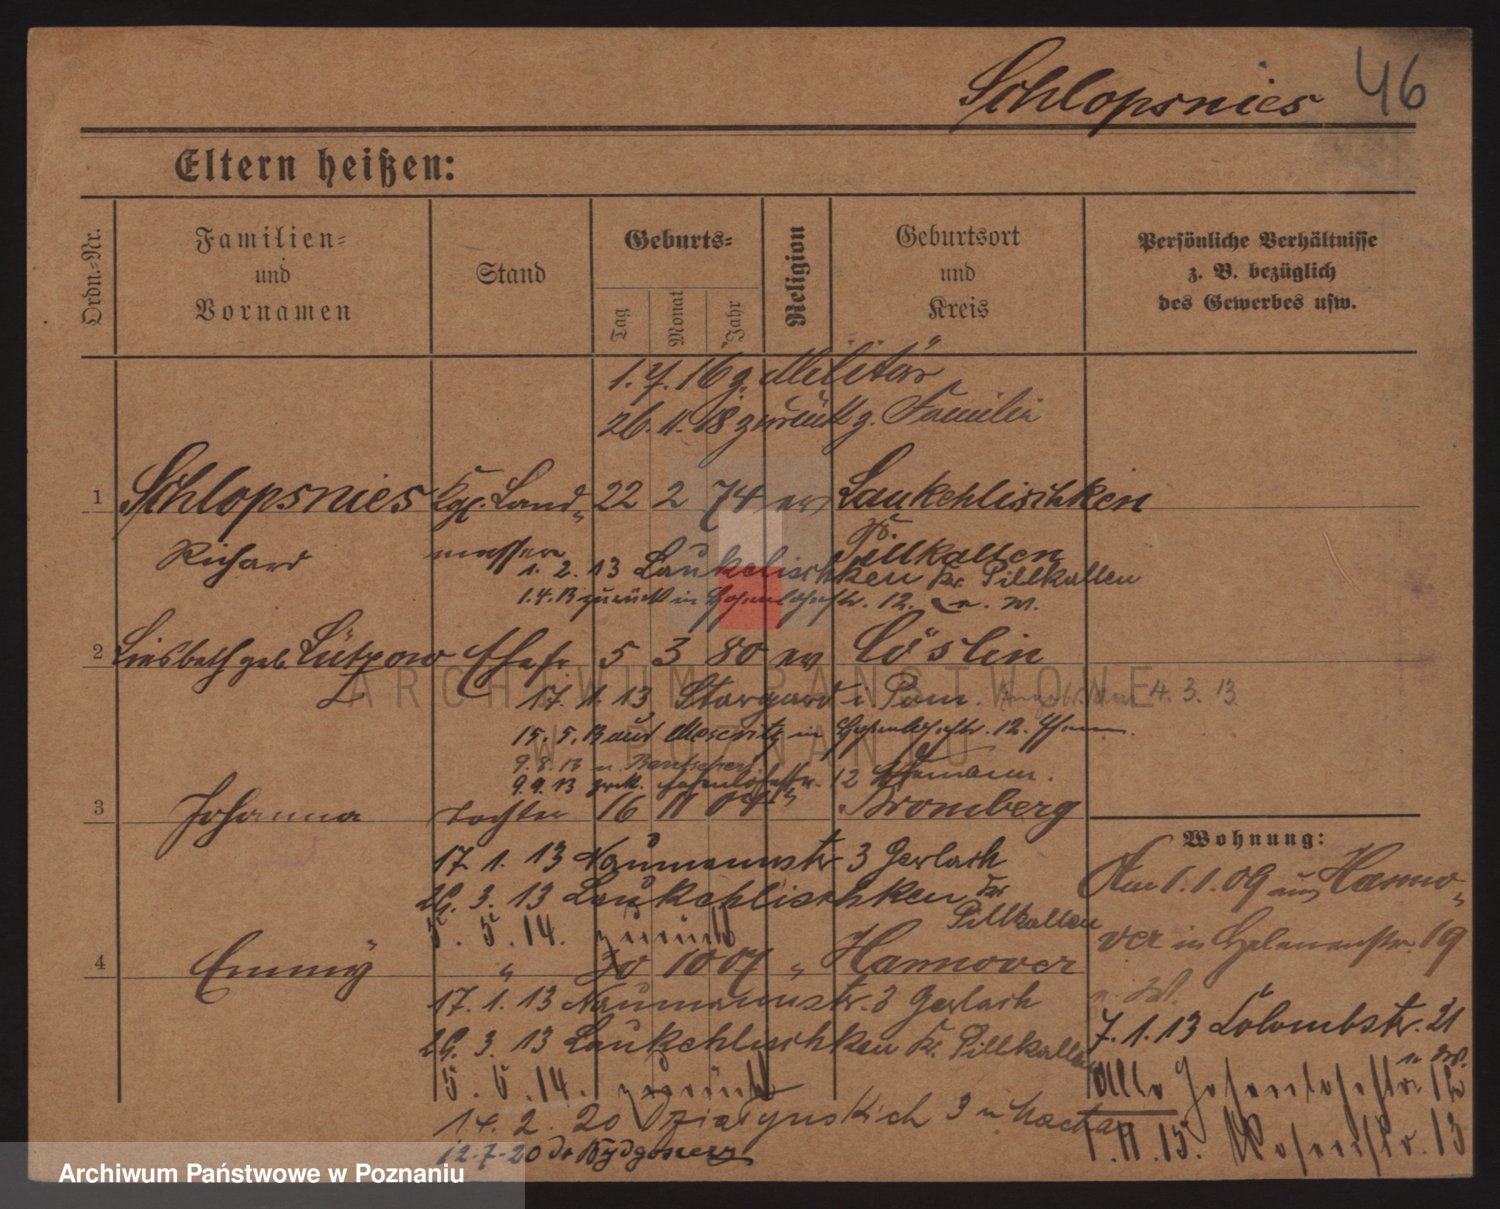 Schlopsnies 46
Eltern heißen:
Ordn.-Nr.
Familien-
und
Vornamen
Stand
Geburts-
Tag
Monat
Jahr
Religion
Geburtsort
und
Kreis
Persönliche Verhältnisse
z. B. bezüglich
des Gewerbes usw.
1.7.16 z. Militär
26.11.18 zurück z. Familie
1 Schlopsnies Kgl. Land- 22 2 74 ev Laukehlischken
Richard messer Pillkallen
1. 2. 13 Laukehlischken Kr. Pillkallen
1.4.13 zurück in Hohenlohestr. 12.
2 Liesbeth geb. Lützow Ehefr. 5 3 80 ev Cöslin
17. 1. 13 Stargard i Pom. 4. 3. 13
15. 5. 13 aus Meseritz in Hohenlohestr. 12. Ehem
9.8.13 n. Bentschen
9.9.13 zrck. Hohenlohestr. 12 Ehemann.
3 Johanna Tochter 16 11 04 " Bromberg
17. 1. 13 Naumannstr 3 Gerlach
29. 3. 13 Laukehlischken Kr
Pillkallen
5. 5. 14. zurück
4 Emmy " 30 10 07 " Hannover
17. 1. 13 Naumannstr. 3 Gerlach
29. 3. 13 Laukehlischken Kr. Pillkallen
5. 5. 14. zurück
14. 2. 20 3
12.7.20 do Bydgoszczy
Wohnung:
Am 1.1.09 aus Hanno-
ver in 19
7.1.13 Colombstr. 21
Alle Hohenlohestr. 12
1.11.15. Posenstr. 13
ARCHIWUM PAŃSTWOWE
W POZNANIU
Archiwum Państwowe w Poznaniu